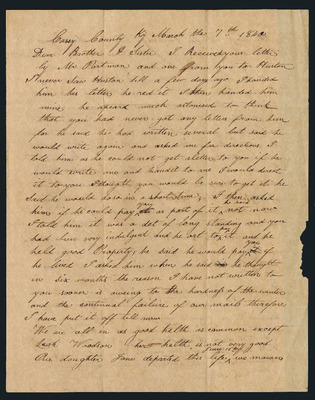 Casey County Ky March the 7th
Dear Brother & Sister I Received your letter
by Mr and one from you to Huston
I never saw Huston till a few days ago I handed
him her letter he red it I then handed him
mine, he apeard much astonised to think
that you had never got any letter from him
for he said he had written several but said he
would write again and asked me for directions I
told him as he could not get a letter to you if he
would write one and handit to me I would direct
it to you I thought you would be sure to get it he
Said he would do so in a short time, I then asked
him if he could pay you or part of it, he said not now
I told him it was a det of long standing and you
had been very indulgent and he ort to pay it and he
held good Property, he said he would pay you if
he lived I asked him when he said he thought
in six months the reason I have not written to
you sooner is owing to the hardness of the winter
and the continual failure of our mails therefore
I have put it off till now
We are all in as good helth as common except
Woodson her helth is not very good
Our daughter Jane departed this life we